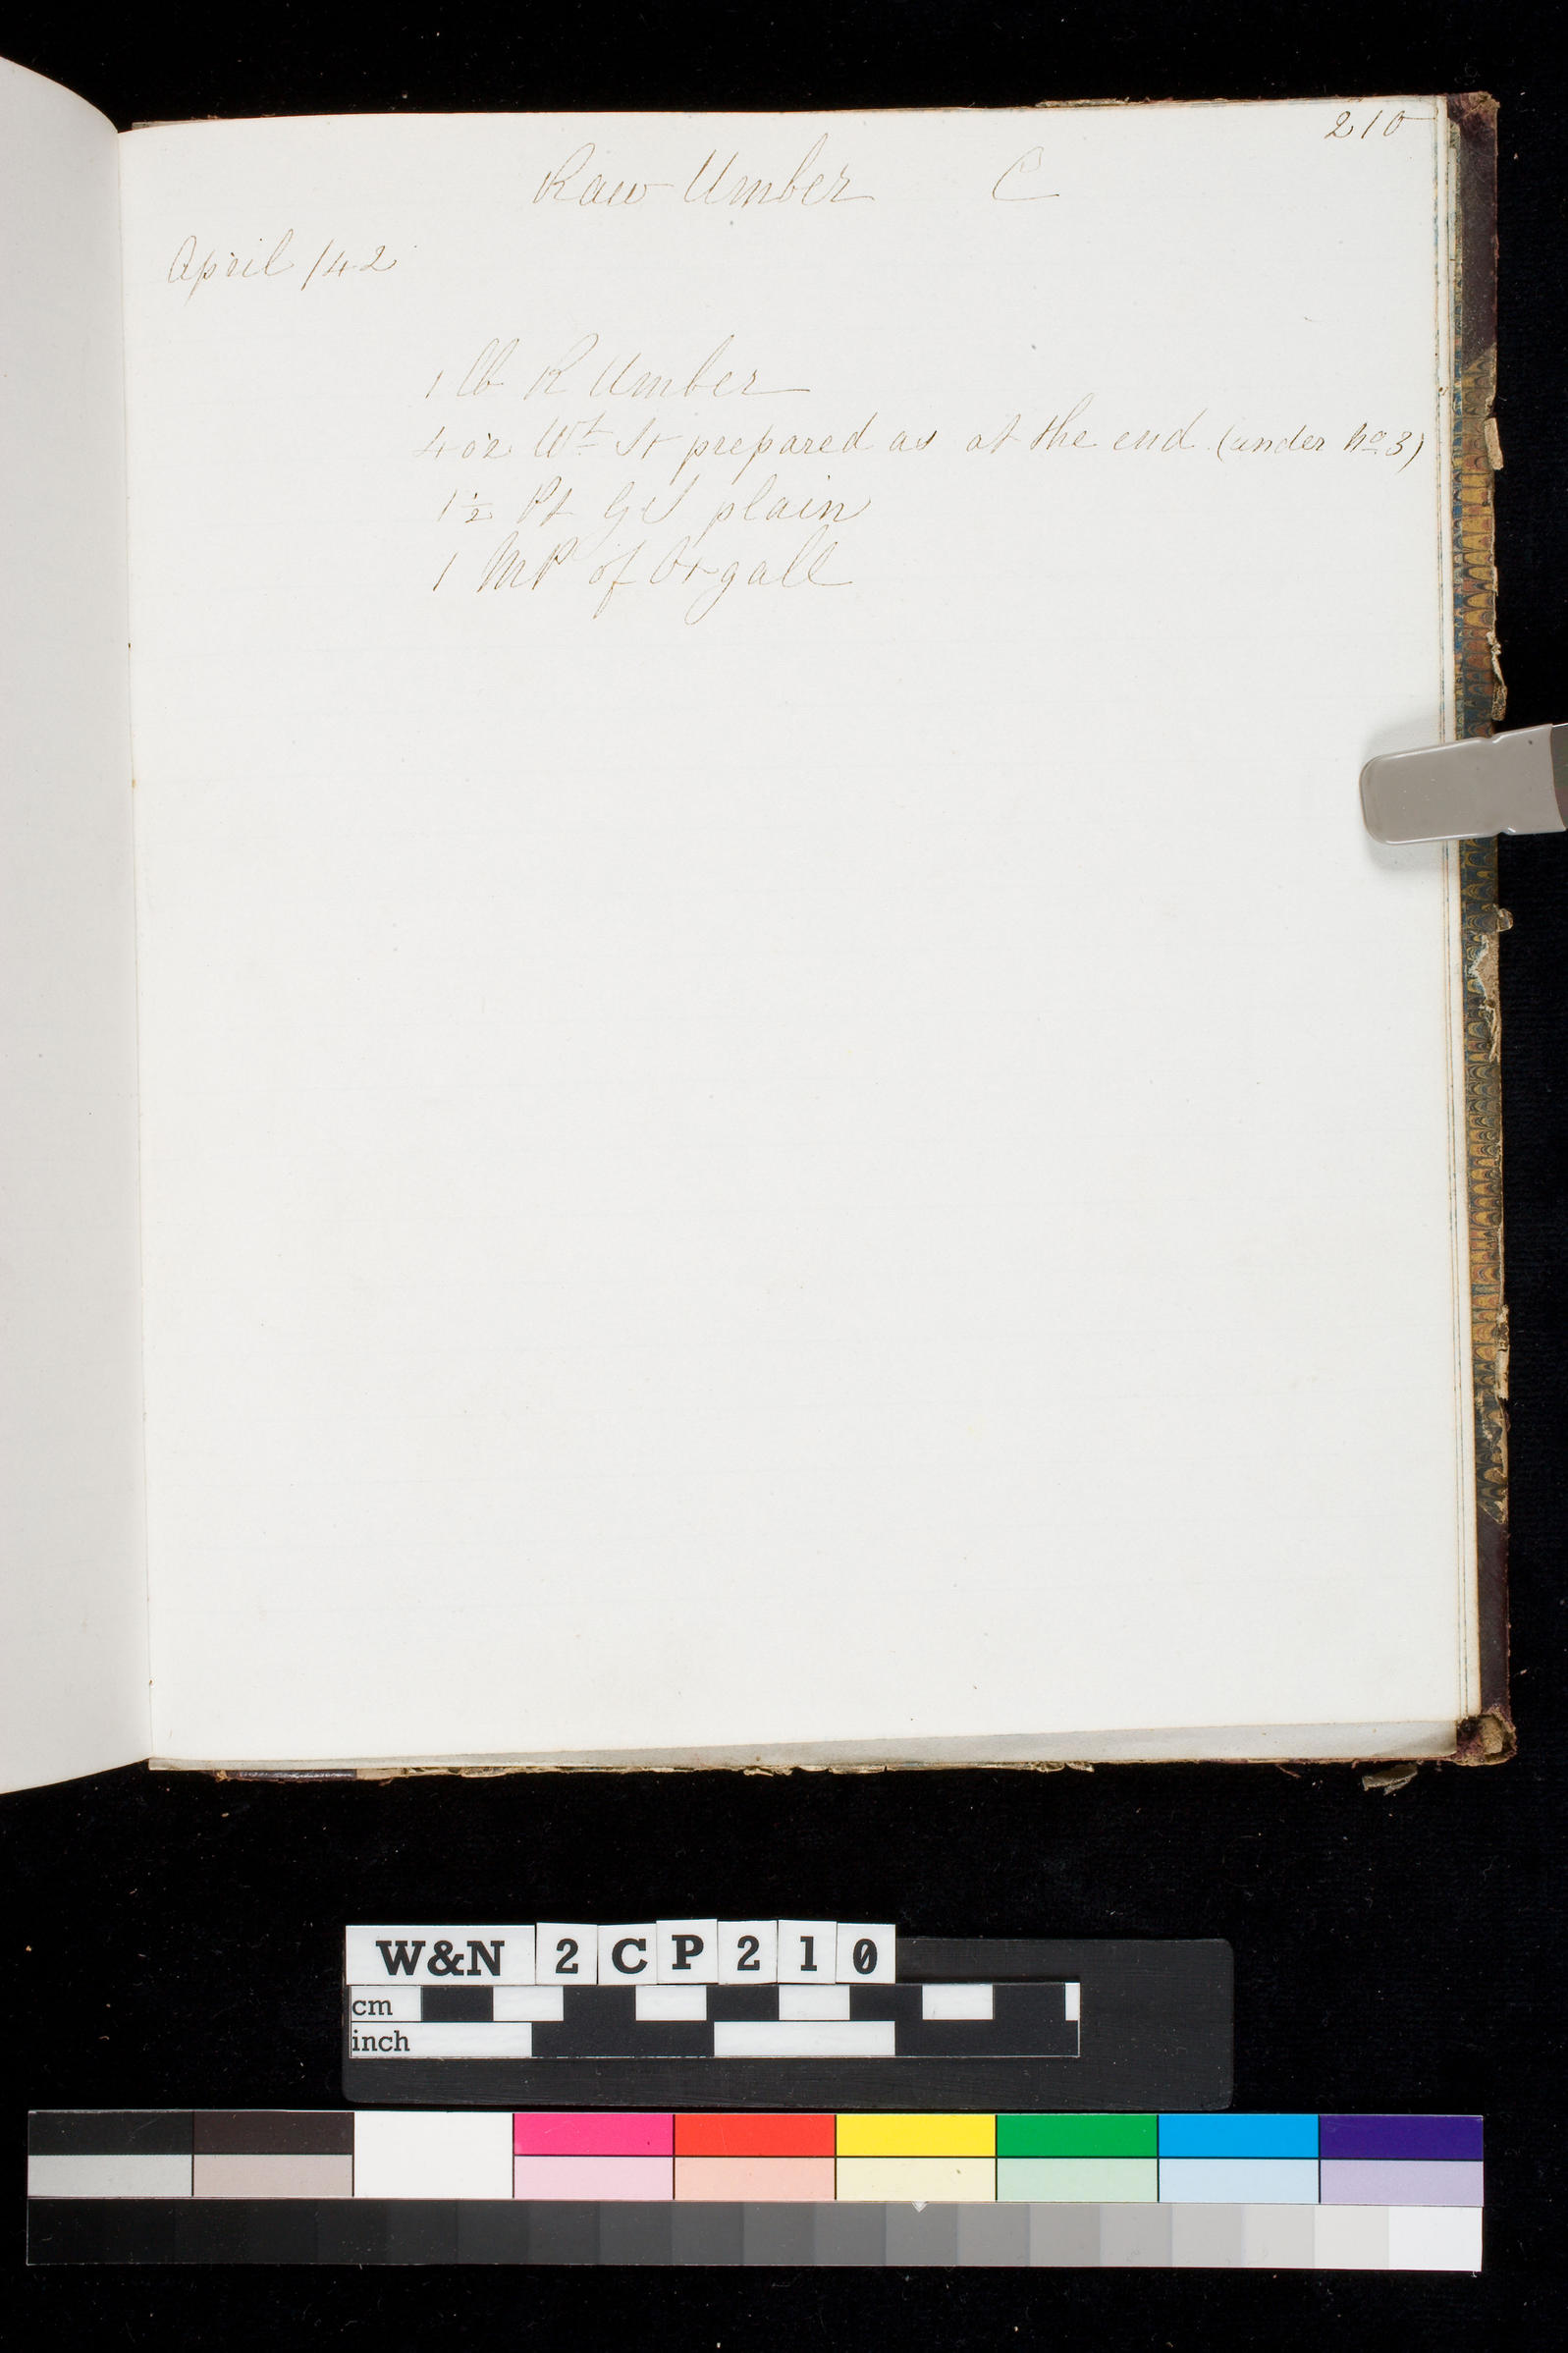 210
Raw Umber C
April /42
1 lb R Umber
4 oz Wt St prepared as at the end (under No 3)
1½ Pt G S plain
1 MP of Oxgall
W&N 2CP210
cm
inch